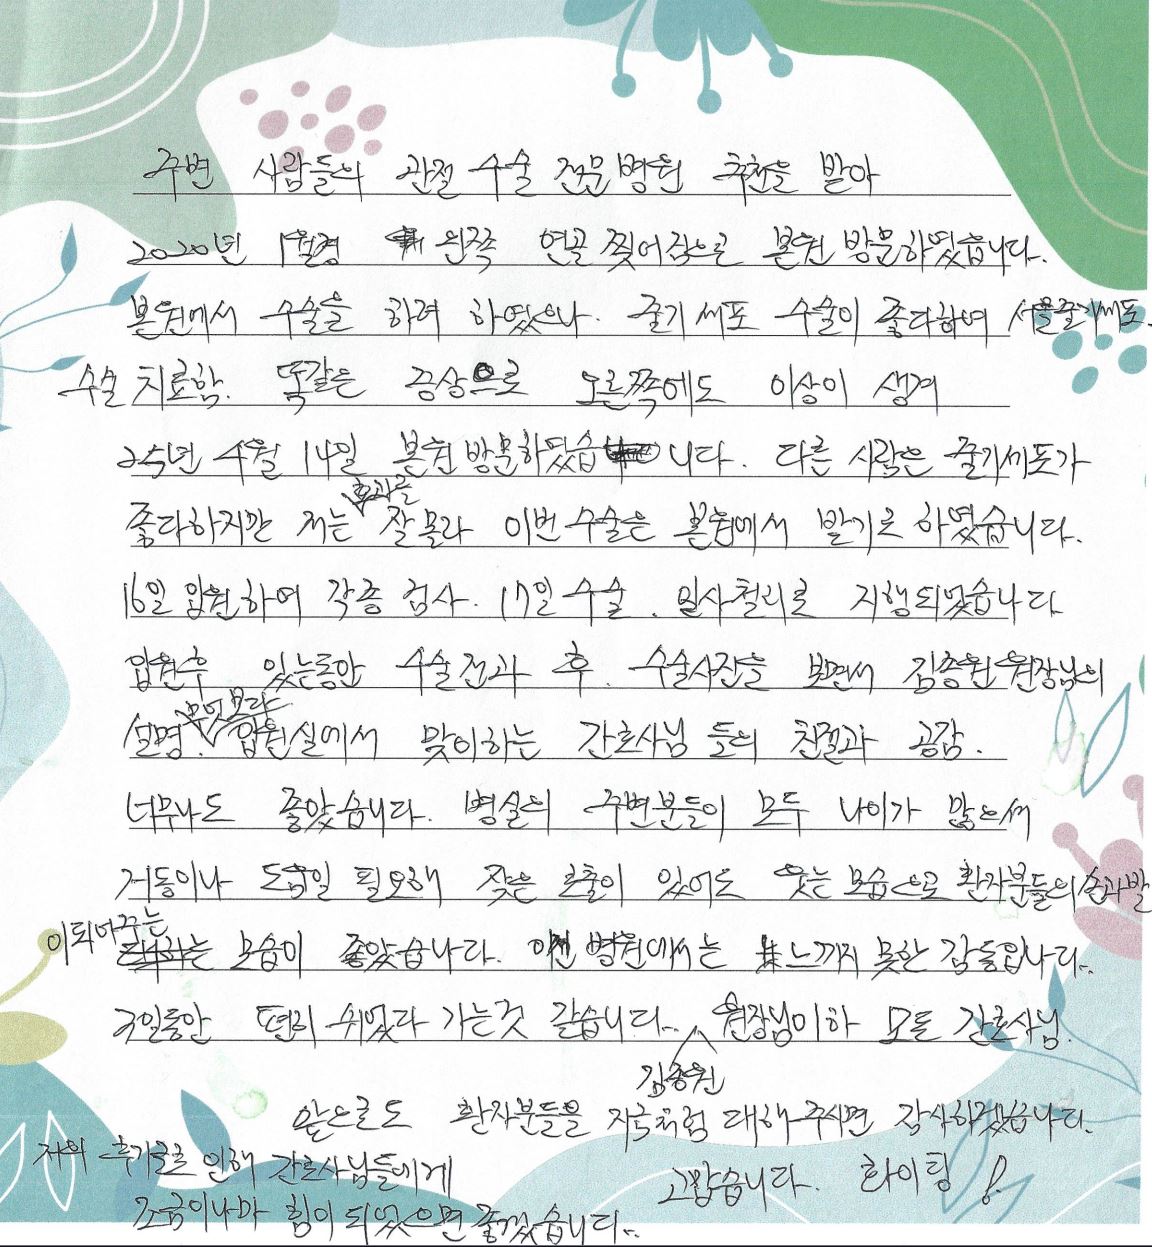 주변 사람들의 관절 수술 전문병원 추천을 받아
2020년 1월경 왼쪽 연골 찢어짐으로 본원 방문하였습니다.
본원에서 수술을 하려 하였으나. 줄기세포 수술이 좋다하여 서울줄기세포.
수술 치료함. 똑같은 증상으로 오른쪽에도 이상이 생겨
25년 4월 14일 본원 방문하였습니다. 다른 사람은 줄기세포가
좋다하지만 저는 효과를 잘 몰라 이번 수술은 본원에서 받기로 하였습니다.
16일 입원하여 각종 검사. 17일 수술. 일사철리로 지행되었습니다
입원후 있는동안 수술전과 후. 수술사진을 보면서 김종원 원장님의
설명. 입원실에서 맞이하는 간호사님 들의 친절과 공감.
너무나도 좋았습니다. 병실의 주변분들이 모두 나이가 많으셔
거동이나 도움일 필요해 잦은 호출이 있어도 웃는 모습으로 환자분들의 손과발
이되어주는 모습이 좋았습니다. 병원에서는 느끼지 못한 감동입니다..
3일동안 편히 쉬었다 가는것 같습니다.. 김종원 원장님이하 모든 간호사님.
앞으로도 환자분들을 지금처럼 대해주시면 감사하겠습니다.
고맙습니다. 화이팅!
저의 후기글로 인해 간호사님들에게
조금이나마 힘이 되었으면 좋겠습니다..